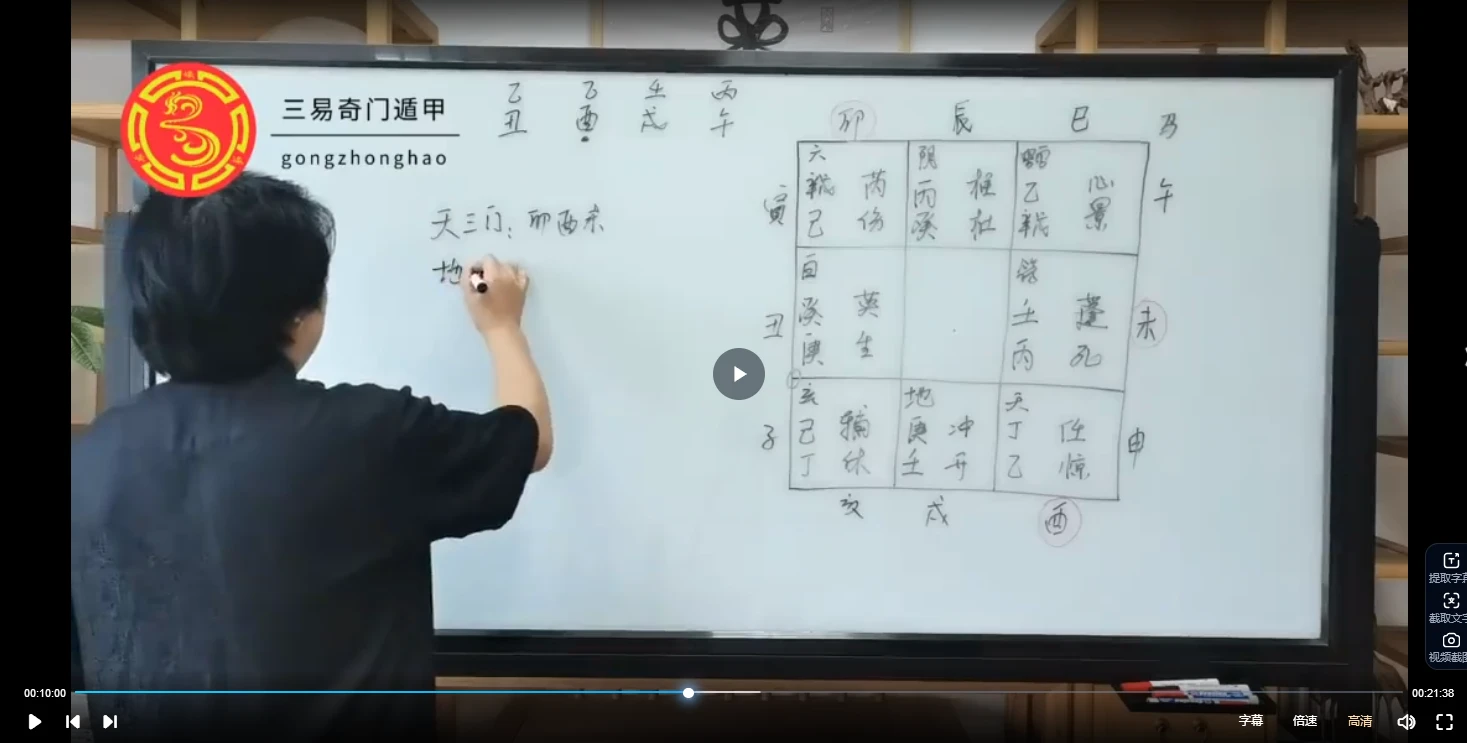 三易奇门遁甲
gongzhonghao
乙 乙 壬 丙
丑 酉 戌 午
天三门：卯酉未
地
卯 辰 巳
寅 午
六 阴
己 芮 伤
丙 柱
癸 杜
乙 心
景
丑 未
白
癸 英
庚 生
壬 蓬
丙 死
子 申
玄 地 天
己 辅 庚 冲 丁 任
丁 休 壬 开 乙 惊
亥 戌 酉
00:10:00
00:21:38
字幕 倍速 高清
提取字幕
截取文字
视频截图